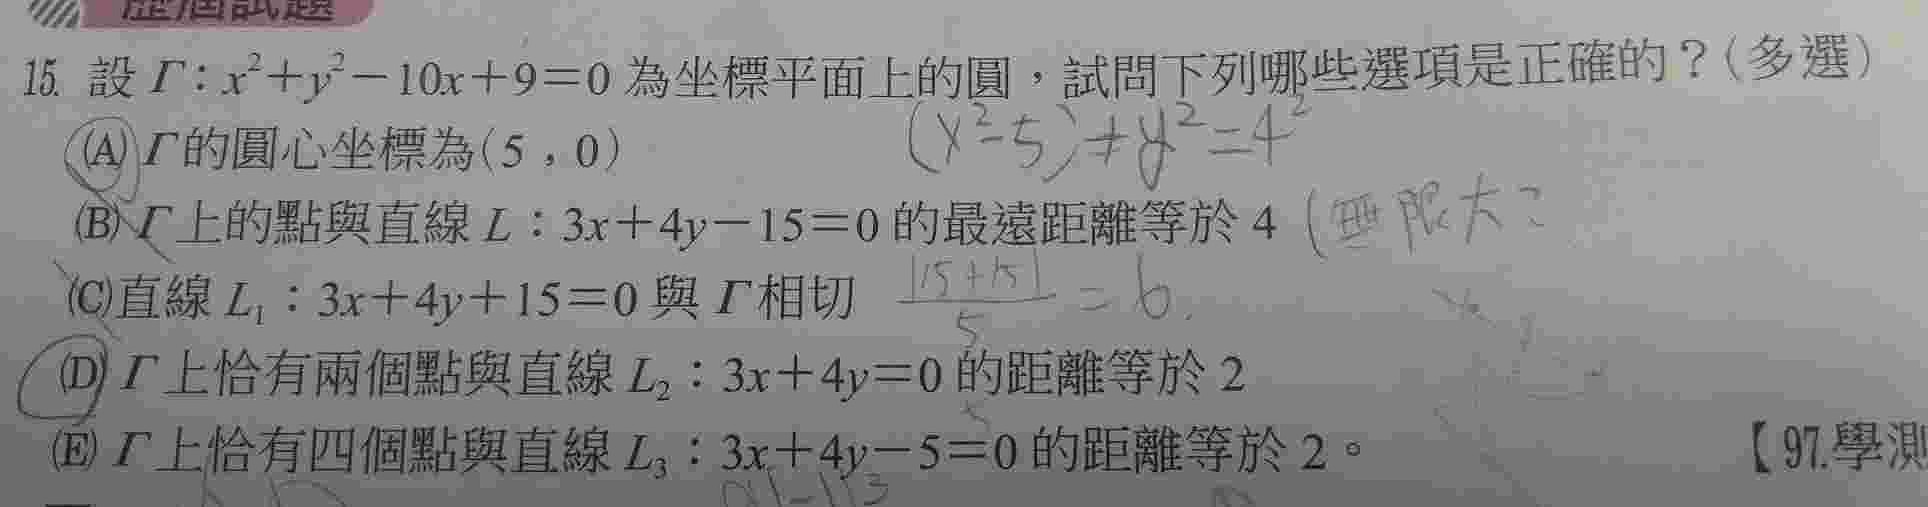 歷屆試題
15. 設 Γ：x²+y²−10x+9=0 為坐標平面上的圓，試問下列哪些選項是正確的？(多選)
(x²-5)+y²=4²
(A) Γ 的圓心坐標為(5，0)
(B) Γ 上的點與直線 L：3x+4y−15=0 的最遠距離等於 4 (無限大?
(C)直線 L₁：3x+4y+15=0 與 Γ 相切 |15+15|/5 = 6.
(D) Γ 上恰有兩個點與直線 L₂：3x+4y=0 的距離等於 2
5
(E) Γ 上恰有四個點與直線 L₃：3x+4y−5=0 的距離等於 2。
【97.學測